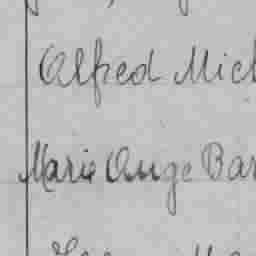 Alfred Mich
Marie Ange Bar